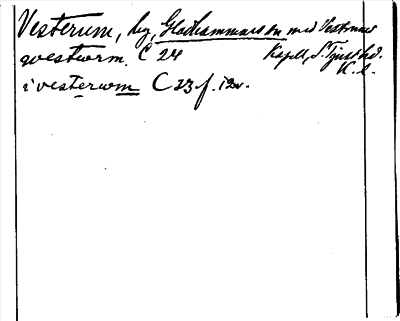 Vesterum, by, Gladhammars sn med Vestrums
kapell, S. Tjust hd.
K. l.
westwrm. C 24
i vesterwm C 23 f. 12v.